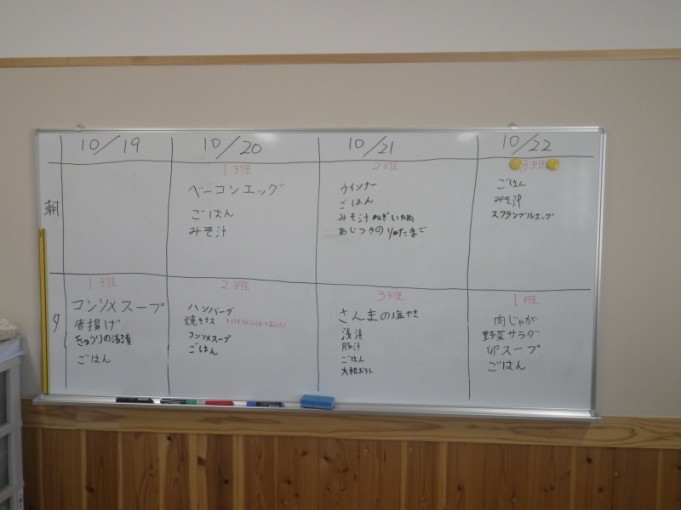 10/19 10/20 10/21 10/22
朝
1 班
ベーコンエッグ
ごはん
みそ汁
2班
ウインナー
ごはん
みそ汁
あじつきのり
3班
ごはん
みそ汁
スクランブルエッグ
夕
1 班
コンソメスープ
唐揚げ
きゅうりの浅漬
ごはん
2班
ハンバーグ
焼きナス
コンソメスープ
ごはん
3班
さんまの塩やき
浅漬
豚汁
ごはん
大根おろし
1班
肉じゃが
野菜サラダ
卵スープ
ごはん